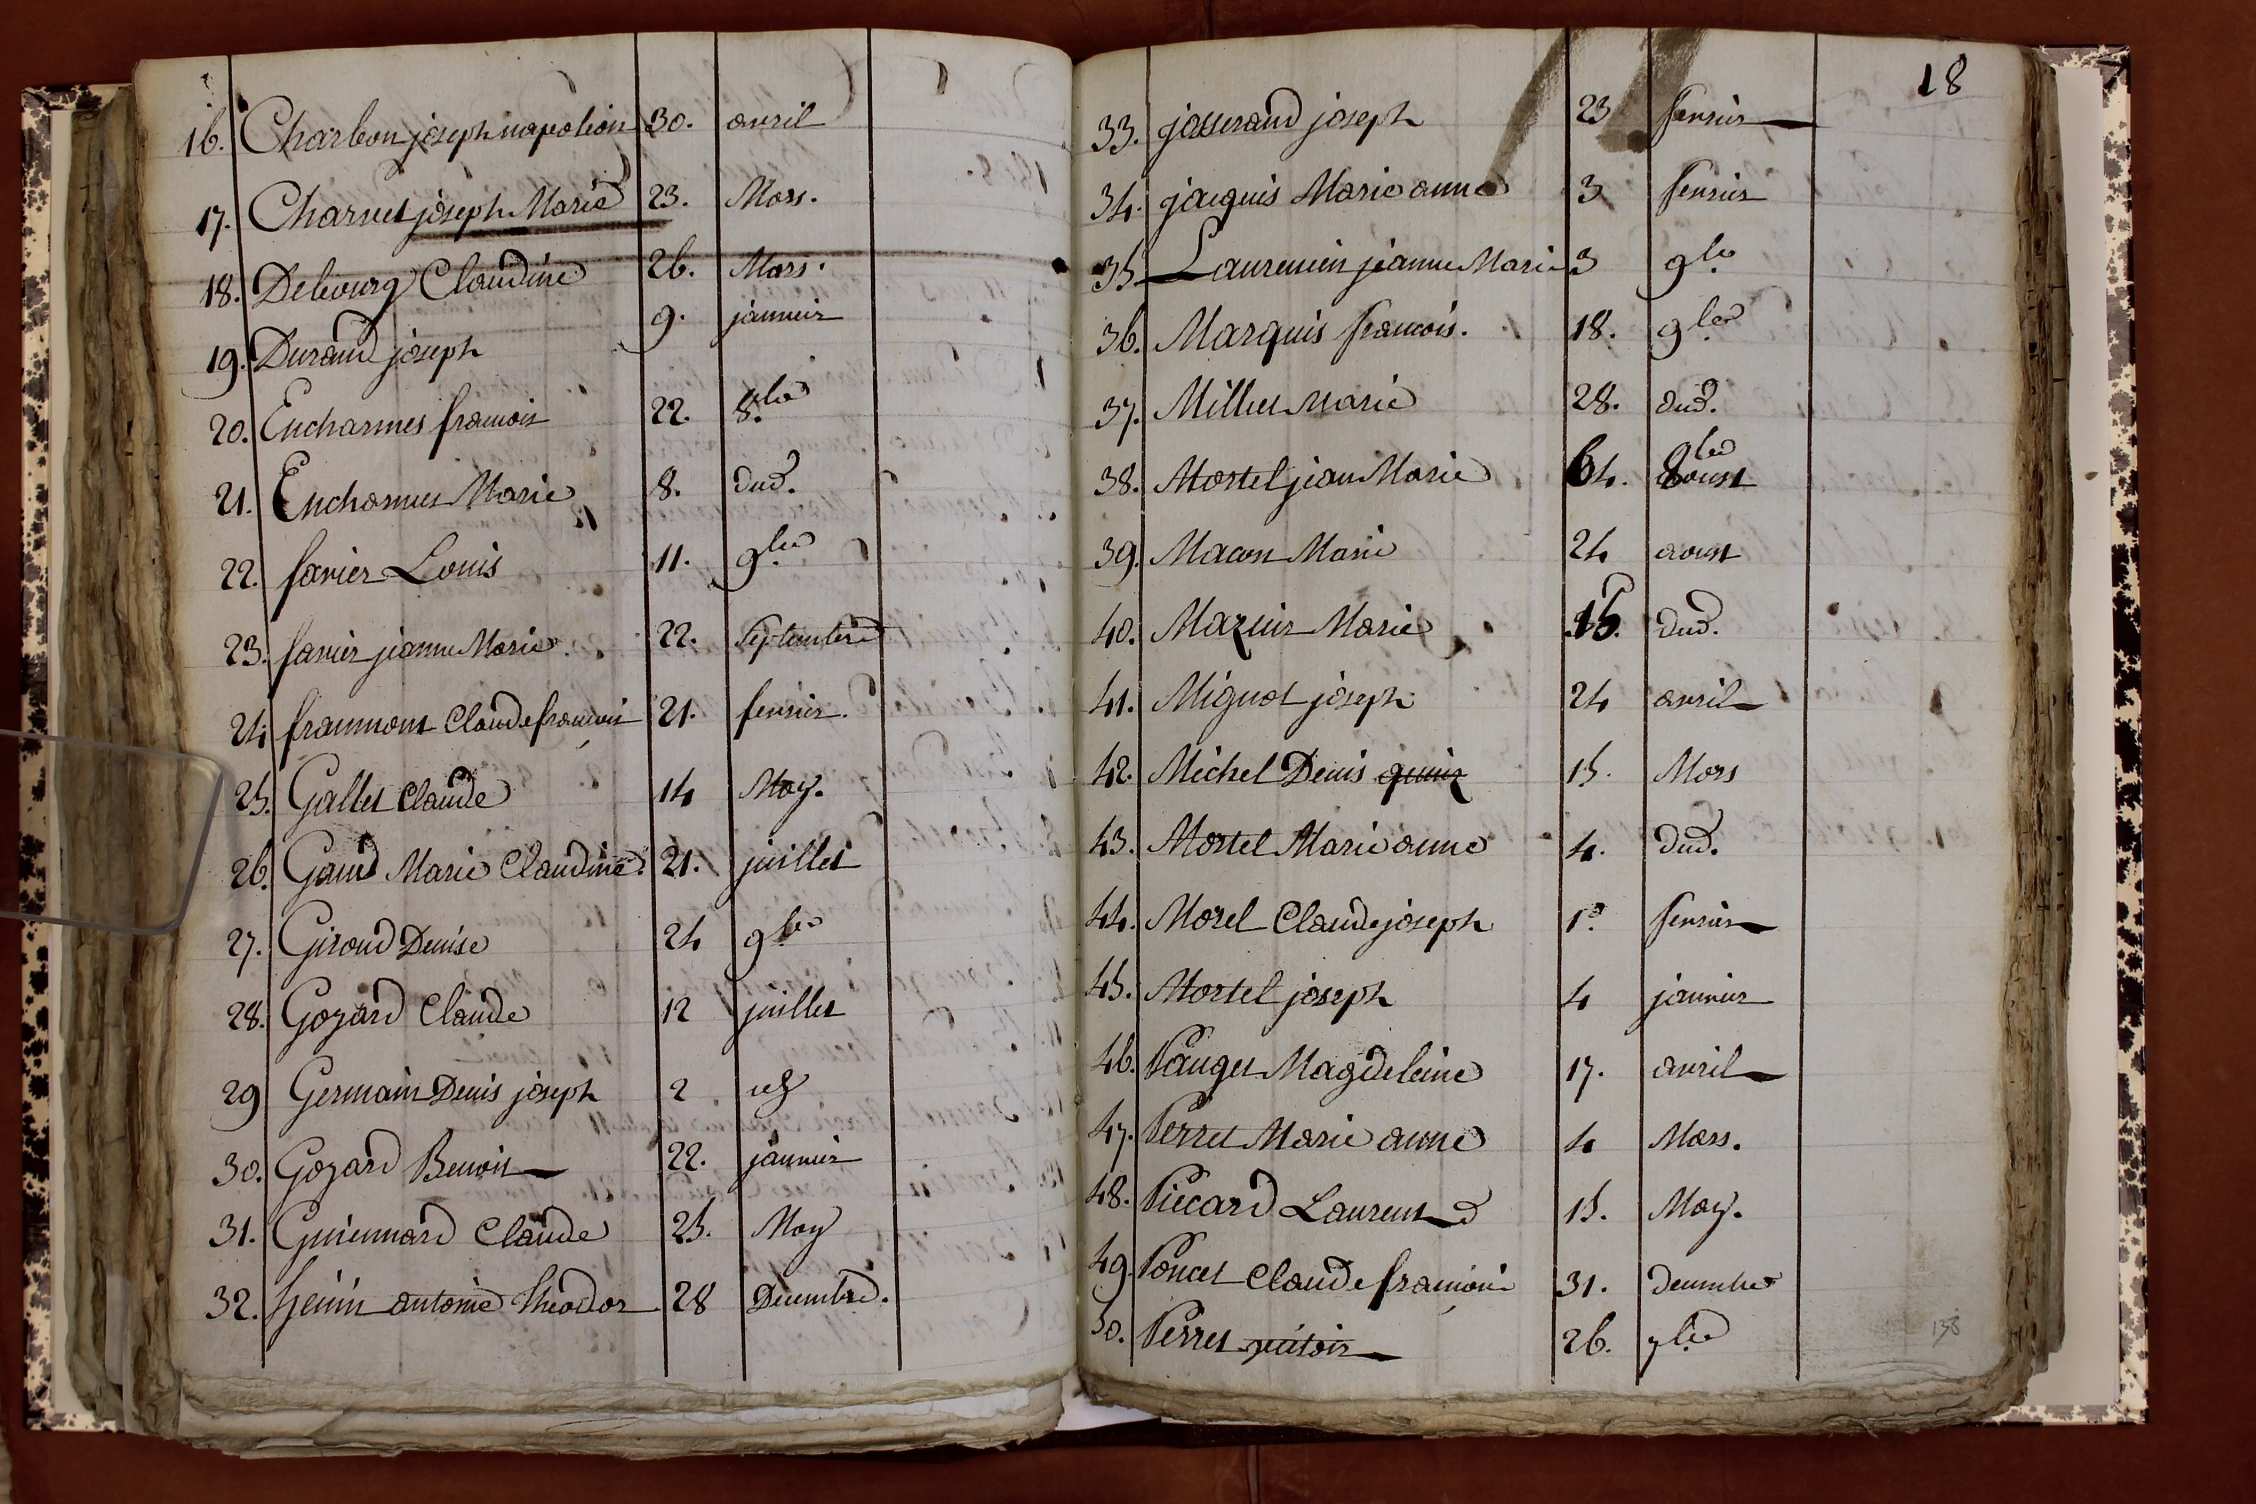 16. Charbon joseph napoleon 30. avril
17. Charvet joseph Marie 23. Mars.
18. Debourg Claudine 26. Mars.
19. Durand joseph 9. janvier
20. Encharmes francois 22. 8.bre
21. Encharmes Marie 8. dud.
22. favier Louis 11. 9.bre
23. favier jeanne Marie 22. Septembre
24 fraumont Claude francois 21. fevrier.
25. Gallet Claude 14 May.
26. Gaud Marie Claudine. 21. juillet
27. Giroud Denise 24 9bre
28. Gozard Claude 12 juillet
29 Germain Denis joseph 2
30. Gozard Benoit 22. janvier
31. Guiennard Claude 25. May
32. henin antoine theodor 28 Decembre.
18
33. josserand joseph 23 fevrier
34. jacquis Marie anne 3 fevrier
35 Laurencin jeanne Marie 3 9bre
36. Marquis francois. 18. 9bre
37. Millet Marie 28. dud.
38. Mortel jean Marie 8bre
39. Macon Marie 24 aoust
40. Mazuir Marie 15. dud.
41. Mignot joseph 24 avril
42. Michel Denis 15. Mars
43. Mortel Marie anne 4. dud.
44. Morel Claude joseph 1.er fevrier
45. Mortel joseph 4 janvier
46. Pauget Magdeleine 17. avril
47. Perret Marie anne 4 Mars.
48. Piccard Laurent 15. May.
49. Poncet Claude francois 31. decembre
50. Perret 26. 7bre
138